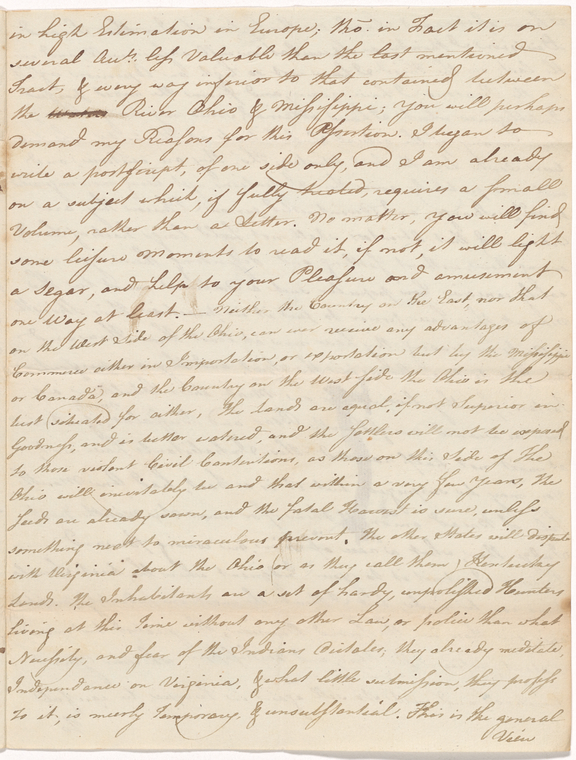 in high Estimation in Europe; tho. in Fact it is on
several Accts. less Valuable than the last mentioned
Tract, & every way inferior to that contained between
the River Ohio & Missisippi; you will perhaps
demand my Reasons for this Assertion. I began to
write a postscript, of one side only, and I am already
on a subject which, if fully treated, requires a small
Volume, rather than a Letter. No matter, you will find
some leisure moments to read it, if not, it will light
a segar, and help to your Pleasure and amusement
one way at least. — Neither the Country on the East, nor that
on the West side of the Ohio, can ever receive any advantages of
Commerce either in Importation, or exportation but by the Missisippi
or Canada, and the Country on the West side the Ohio is the
best situated for either, The lands are equal, if not superior in
Goodness, and is better watered, and the settlers will not be exposed
to those violent Civil Contentions, as those on this Side of the
Ohio will inevitably be and that within a very few Years, the
Seeds are already sown, and the fatal Harvest is sure, unless
something next to miraculous prevent. The other States will dispute
with Virginia about the Ohio or as they call them, Kentucky
Lands. The Inhabitants are a set of hardy, unpolished Hunters
living at this Time without any other Law, or police than what
Necessity, and fear of the Indians Dictates, they already meditate,
Independance on Virginia, & what little submission, they profess
to it, is meerly Temporary, & unsubstantial. This is the general
View